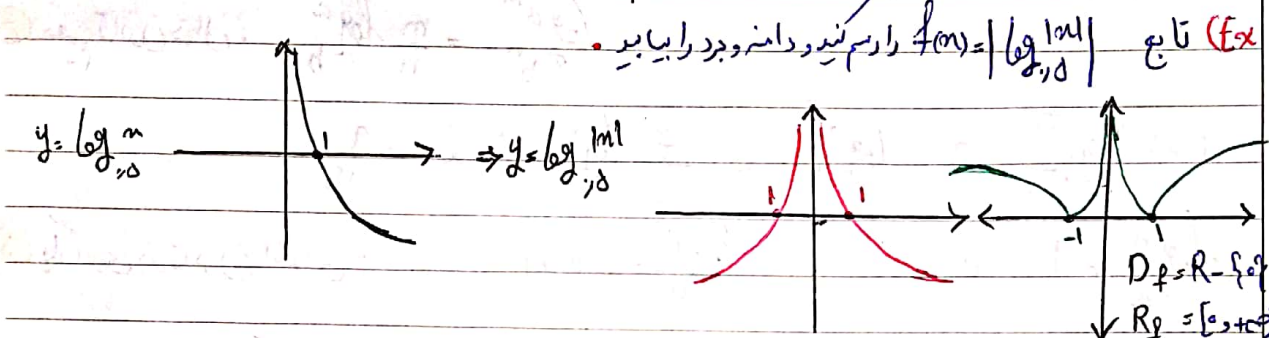 Ex) تابع f(x)=|log_{۰٫۵} |x|| را رسم کنید و دامنه و برد را بیابید.
y = log_{۰٫۵} x ⇒ y = log_{۰٫۵} |x|
1
1 1
-1 1
D_f = R - {۰}
R_f = [۰, +∞